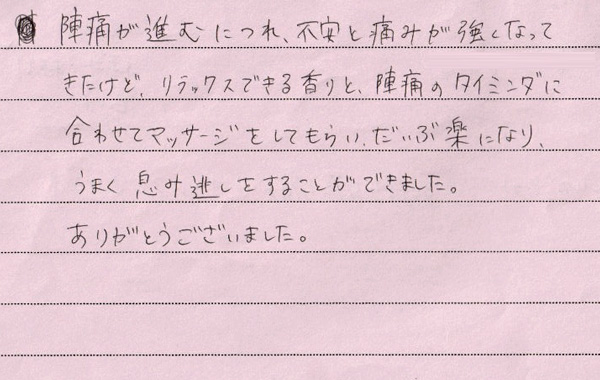 陣痛が進むにつれ、不安と痛みが強くなって
きたけど、リラックスできる香りと、陣痛のタイミングに
合わせてマッサージをしてもらい、だいぶ楽になり、
うまく息み逃しをすることができました。
ありがとうございました。